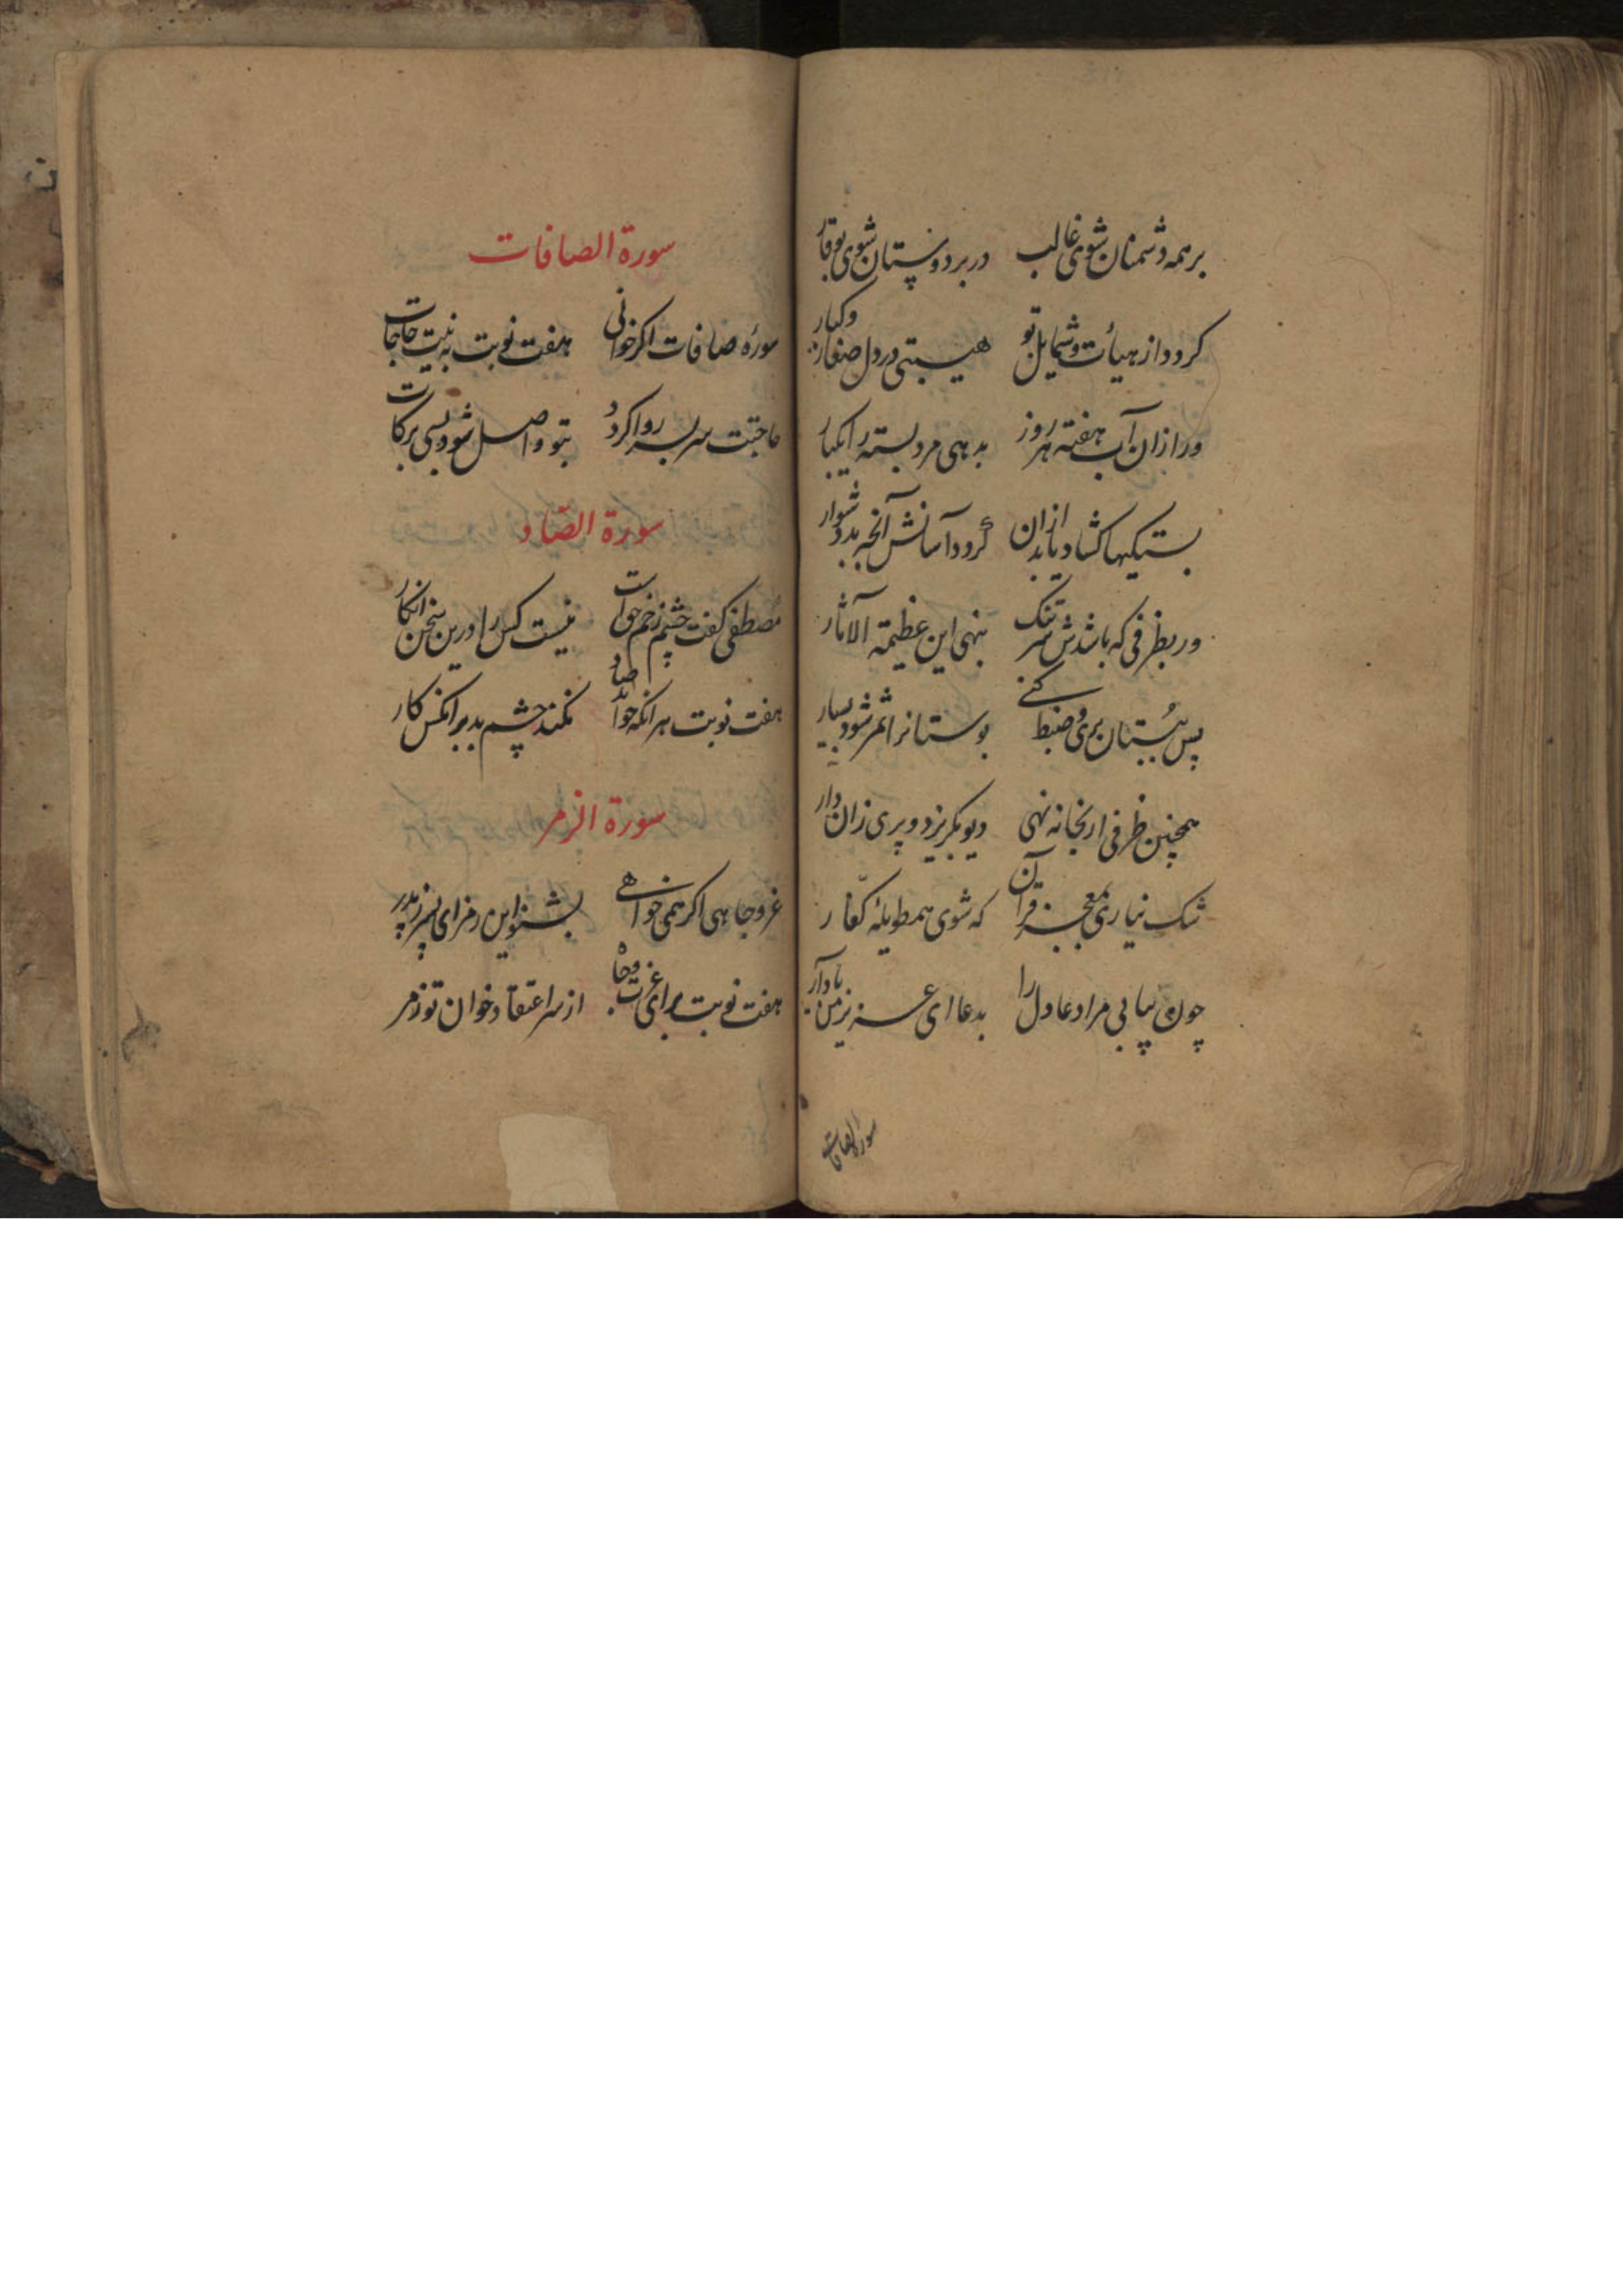 برهمه دشمنان شوی غالب در بر دوستان شوی بوقار
کردد از هیأت و شمایل تو هیبتی در دل صغار و کبار
ور ازان آب هفته هر روز بدهی مرد بسته را یکبار
بستیکیها کشاد یابد ازان کردد آسانش آنچه بد دشوار
ور بظرفی که باشدش سر تنک بنهی این عظیمة الآثار
پس ببستان بری و ضبط کنے بوستانرا ثمر شود بسیار
همچنین ظرفی ار بخانه نهی دیو بکریزد و پری زان دار
شک نیاری بمعجز قرآن که شوی همطویلهٔ کفّار
چون بیابی مراد عادل را بدعا ای عزیز من یاد آر
سورة الصافات
سورة الصافات
سورهٔ صافات اکر خوانی هفت نوبت به نیت حاجات
حاجتت سر بسر روا کردد بتو واصل شود بسی برکات
سورة الصّاد
مصطفی کفت چشم زخم حق است نیست کس را درین سخن انکار
هفت نوبت هر انکه خواند صاد نکند چشم بد بر انکس کار
سورة الزمر
عز و جاهی اکر همی خواهے بشنو این رمز ای پسر ز پدر
هفت نوبت برای عزت و جاه از سر اعتقاد خوان تو زمر